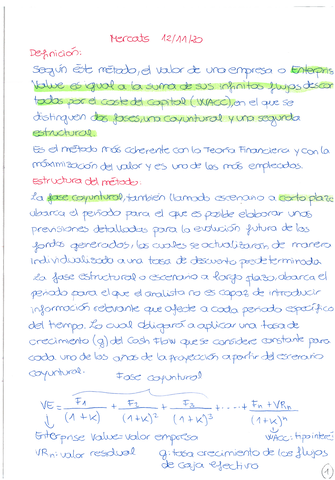 Mercats 12/11/20
Definición:
Según este método, el valor de una empresa o Enterpris
Value es igual a la suma de sus infinitos flujos descon
tados por el coste del capital (WACC), en el que se
distinguen dos fases, una coyuntural y una segunda
estructural.
Es el método más coherente con la Teoría Financiera y con la
máximización del valor y es uno de los más empleados.
Estructura del método:
La fase coyuntural, también llamado escenario a corto plazo
abarca el periodo para el que es posible elaborar unas
previsiones detalladas para la evolución futura de los
fondos generados, los cuales se actualizarán, de manera
individualizada a una tasa de descuento predeterminada
La fase estructural o escenario a largo plazo, abarca el
periodo para el que el analista no es capaz de introducir
información relevante que afecte a cada periodo específico
del tiempo. Lo cual obligará a aplicar una tasa de
crecimiento (g) del Cash Flow que se considere constante para
cada uno de los años de la proyección a partir del escenario
coyuntural.
Fase coyuntural
VE = F1/(1+K) + F2/(1+K)² + F3/(1+K)³ + ···· + Fn + VRn/(1+K)ⁿ
Enterprise Value = valor empresa WACC: tipo interés
VRn: valor residual g: tasa crecimiento de los flujos
de caja efectivo
1